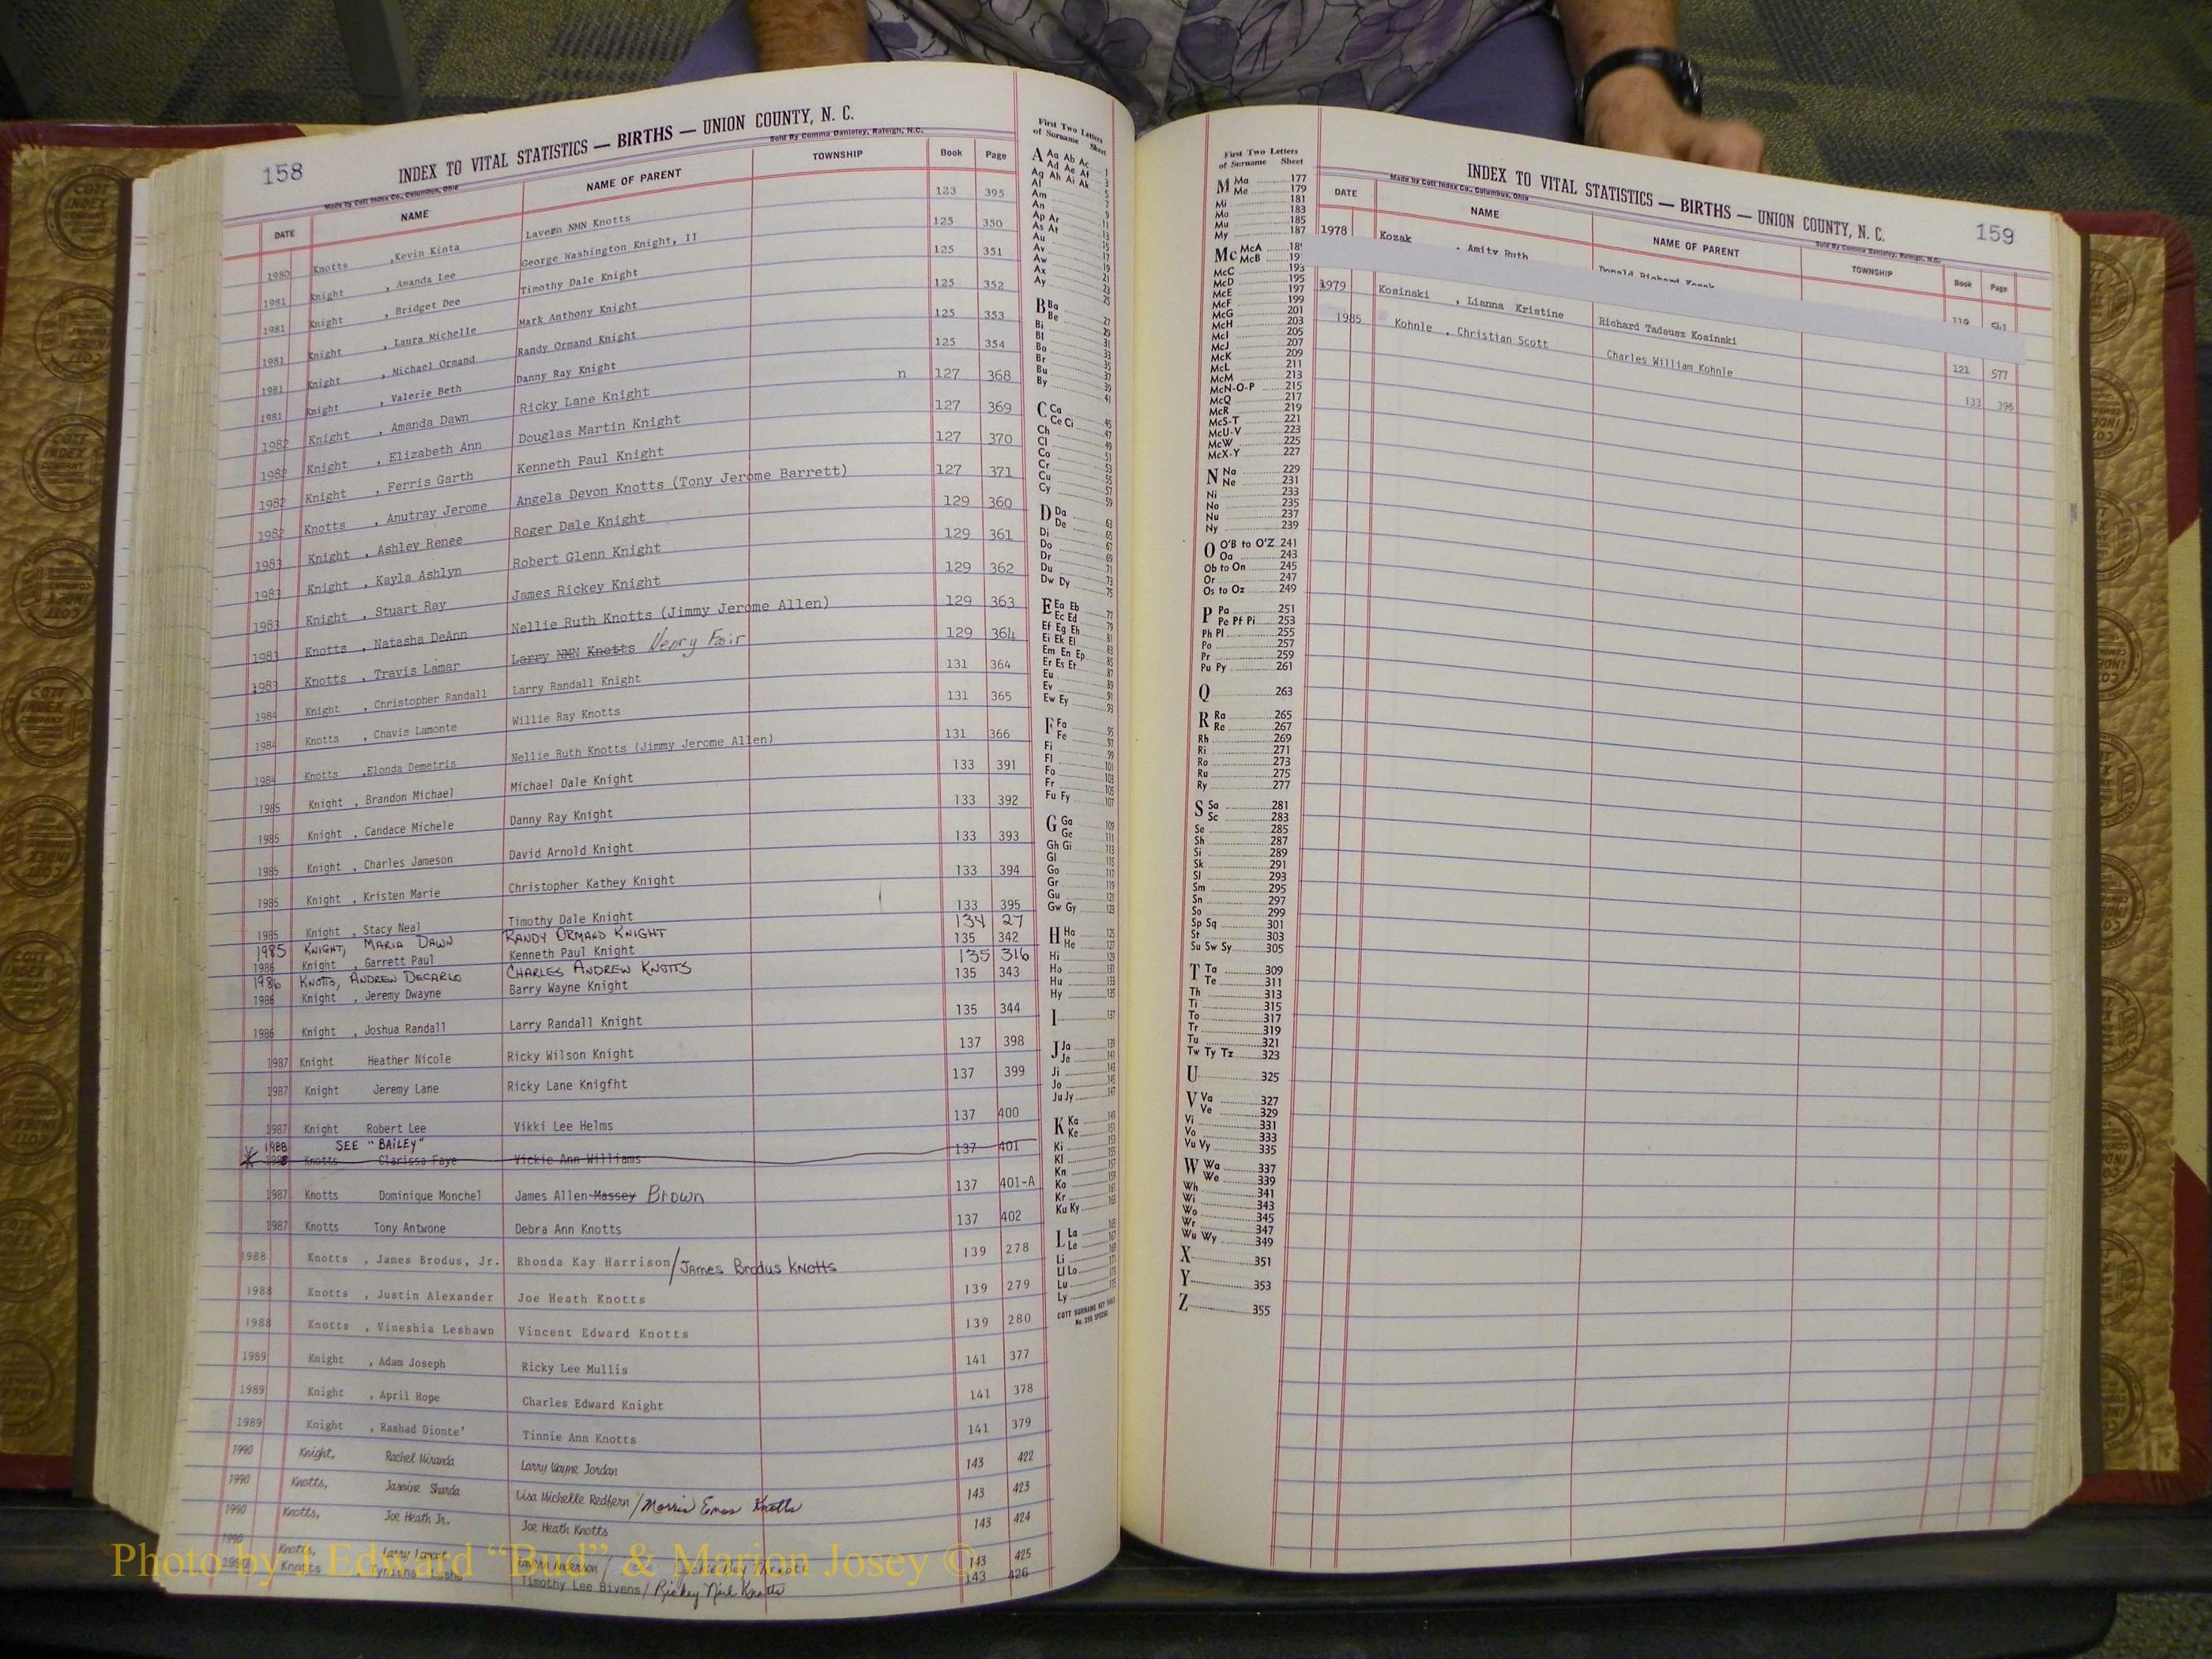 158
INDEX TO VITAL STATISTICS — BIRTHS — UNION COUNTY, N. C.
Made by Cott Index Co., Columbus, Ohio
Sold By Comma Danieley, Raleigh, N.C.
DATE NAME NAME OF PARENT TOWNSHIP Book Page
1980 Knotts ,Kevin Kinta Lavern NMN Knotts 123 395
1981 Knight , Amanda Lee George Washington Knight, II 125 350
1981 Knight , Bridget Dee Timothy Dale Knight 125 351
1981 Knight , Laura Michelle Mark Anthony Knight 125 352
1981 Knight , Michael Ormand Randy Ormand Knight 125 353
1981 Knight , Valerie Beth Danny Ray Knight 125 354
1982 Knight , Amanda Dawn Ricky Lane Knight n 127 368
1982 Knight , Elizabeth Ann Douglas Martin Knight 127 369
1982 Knight , Ferris Garth Kenneth Paul Knight 127 370
1982 Knotts , Anutray Jerome Angela Devon Knotts (Tony Jerome Barrett) 127 371
1983 Knight , Ashley Renee Roger Dale Knight 129 360
1983 Knight , Kayla Ashlyn Robert Glenn Knight 129 361
1983 Knight , Stuart Ray James Rickey Knight 129 362
1983 Knotts , Natasha DeAnn Nellie Ruth Knotts (Jimmy Jerome Allen) 129 363
1983 Knotts , Travis Lamar Larry NMN Knotts Henry Fair 129 364
1984 Knight , Christopher Randall Larry Randall Knight 131 364
1984 Knotts , Chavis Lamonte Willie Ray Knotts 131 365
1984 Knotts ,Elonda Demetris Nellie Ruth Knotts (Jimmy Jerome Allen) 131 366
1985 Knight , Brandon Michael Michael Dale Knight 133 391
1985 Knight , Candace Michele Danny Ray Knight 133 392
1985 Knight , Charles Jameson David Arnold Knight 133 393
1985 Knight , Kristen Marie Christopher Kathey Knight 133 394
1985 Knight , Stacy Neal Timothy Dale Knight 133 395
1985 KNIGHT, MARIA DAWN RANDY ORMAND KNIGHT 134 27
1986 Knight , Garrett Paul Kenneth Paul Knight 135 342
1986 KNOTTS, ANDREW DECARLO CHARLES ANDREW KNOTTS 135 316
1986 Knight , Jeremy Dwayne Barry Wayne Knight 135 343
1986 Knight , Joshua Randall Larry Randall Knight 135 344
1987 Knight Heather Nicole Ricky Wilson Knight 137 398
1987 Knight Jeremy Lane Ricky Lane Knigfht 137 399
1987 Knight Robert Lee Vikki Lee Helms 137 400
1988 SEE "BAILEY"
Knotts Clarissa Faye Vickie Ann Williams 137 401
1987 Knotts Dominique Monchel James Allen Massey Brown 137 401-A
1987 Knotts Tony Antwone Debra Ann Knotts 137 402
1988 Knotts , James Brodus, Jr. Rhonda Kay Harrison/James Brodus Knotts 139 278
1988 Knotts , Justin Alexander Joe Heath Knotts 139 279
1988 Knotts , Vineshia Leshawn Vincent Edward Knotts 139 280
1989 Knight , Adam Joseph Ricky Lee Mullis 141 377
1989 Knight , April Hope Charles Edward Knight 141 378
1989 Knight , Rashad Dionte' Tinnie Ann Knotts 141 379
1990 Knight, Rachel Miranda Larry Wayne Jordan 143 422
1990 Knotts, Jasmine Sharda Lisa Michelle Redfern / Morris Knotts 143 423
1990 Knotts, Joe Heath Jr. Joe Heath Knotts 143 424
1990 Knotts, Larry 143 425
1990 Knotts Timothy Lee Bivens/ Rickey Neil Knotts 143 426
First Two Letters of Surname Sheet
A Aa Ab Ac 1
Ad Ae Af 3
Ag Ah Ai Ak 5
Al 7
Am 9
An 11
Ap Ar 13
As At 15
Au 17
Av 19
Aw 21
Ax 23
Ay 25
B Ba 27
Be 29
Bi 31
Bl 33
Bo 35
Br 37
Bu 39
By 41
C Ca 45
Ce Ci 47
Ch 49
Cl 51
Co 53
Cr 55
Cu 57
Cy 59
D Da 63
De 65
Di 67
Do 69
Dr 71
Du 73
Dw Dy 75
E Ea Eb 77
Ec Ed 79
Ef Eg Eh 81
Ei Ek El 83
Em En Ep 85
Er Es Et 87
Eu 89
Ev 91
Ew Ey 93
F Fa 95
Fe 97
Fi 99
Fl 101
Fo 103
Fr 105
Fu Fy 107
G Ga 109
Ge 111
Gh Gi 113
Gl 115
Go 117
Gr 119
Gu 121
Gw Gy 123
H Ha 125
He 127
Hi 129
Ho 131
Hu 133
Hy 135
I 137
J Ja 139
Je 141
Ji 143
Jo 145
Ju Jy 147
K Ka 149
Ke 151
Ki 153
Kl 155
Kn 157
Ko 159
Kr 161
Ku Ky 163
L La 165
Le 167
Li 169
Ll Lo 171
Lu 173
Ly 175
COTT SURNAME KEY TABLE
First Two Letters of Surname Sheet
M Ma 177
Me 179
Mi 181
Mo 183
Mu 185
My 187
Mc McA 18
McB 19
McC 193
McD 195
McE 197
McF 199
McG 201
McH 203
McI 205
McJ 207
McK 209
McL 211
McM 213
McN-O-P 215
McQ 217
McR 219
McS-T 221
McU-V 223
McW 225
McX-Y 227
N Na 229
Ne 231
Ni 233
No 235
Nu 237
Ny 239
O O'B to O'Z 241
Oa 243
Ob to On 245
Or 247
Os to Oz 249
P Pa 251
Pe Pf Pi 253
Ph Pl 255
Po 257
Pr 259
Pu Py 261
Q 263
R Ra 265
Re 267
Rh 269
Ri 271
Ro 273
Ru 275
Ry 277
S Sa 281
Sc 283
Se 285
Sh 287
Si 289
Sk 291
Sl 293
Sm 295
Sn 297
So 299
Sp Sq 301
St 303
Su Sw Sy 305
T Ta 309
Te 311
Th 313
Ti 315
To 317
Tr 319
Tu 321
Tw Ty Tz 323
U 325
V Va 327
Ve 329
Vi 331
Vo 333
Vu Vy 335
W Wa 337
We 339
Wh 341
Wi 343
Wo 345
Wr 347
Wu Wy 349
X 351
Y 353
Z 355
INDEX TO VITAL STATISTICS — BIRTHS — UNION COUNTY, N. C.
159
Made by Cott Index Co., Columbus, Ohio
Sold By Comma Danieley, Raleigh, N.C.
DATE NAME NAME OF PARENT TOWNSHIP Book Page
1978 Kozak , Amity Ruth Donald Richard Kozak 119 541
1979 Kosinski , Lianna Kristine Richard Tadeusz Kosinski 121 577
1985 Kohnle , Christian Scott Charles William Kohnle 133 396
Photo by J. Edward "Bud" & Marion Josey ©